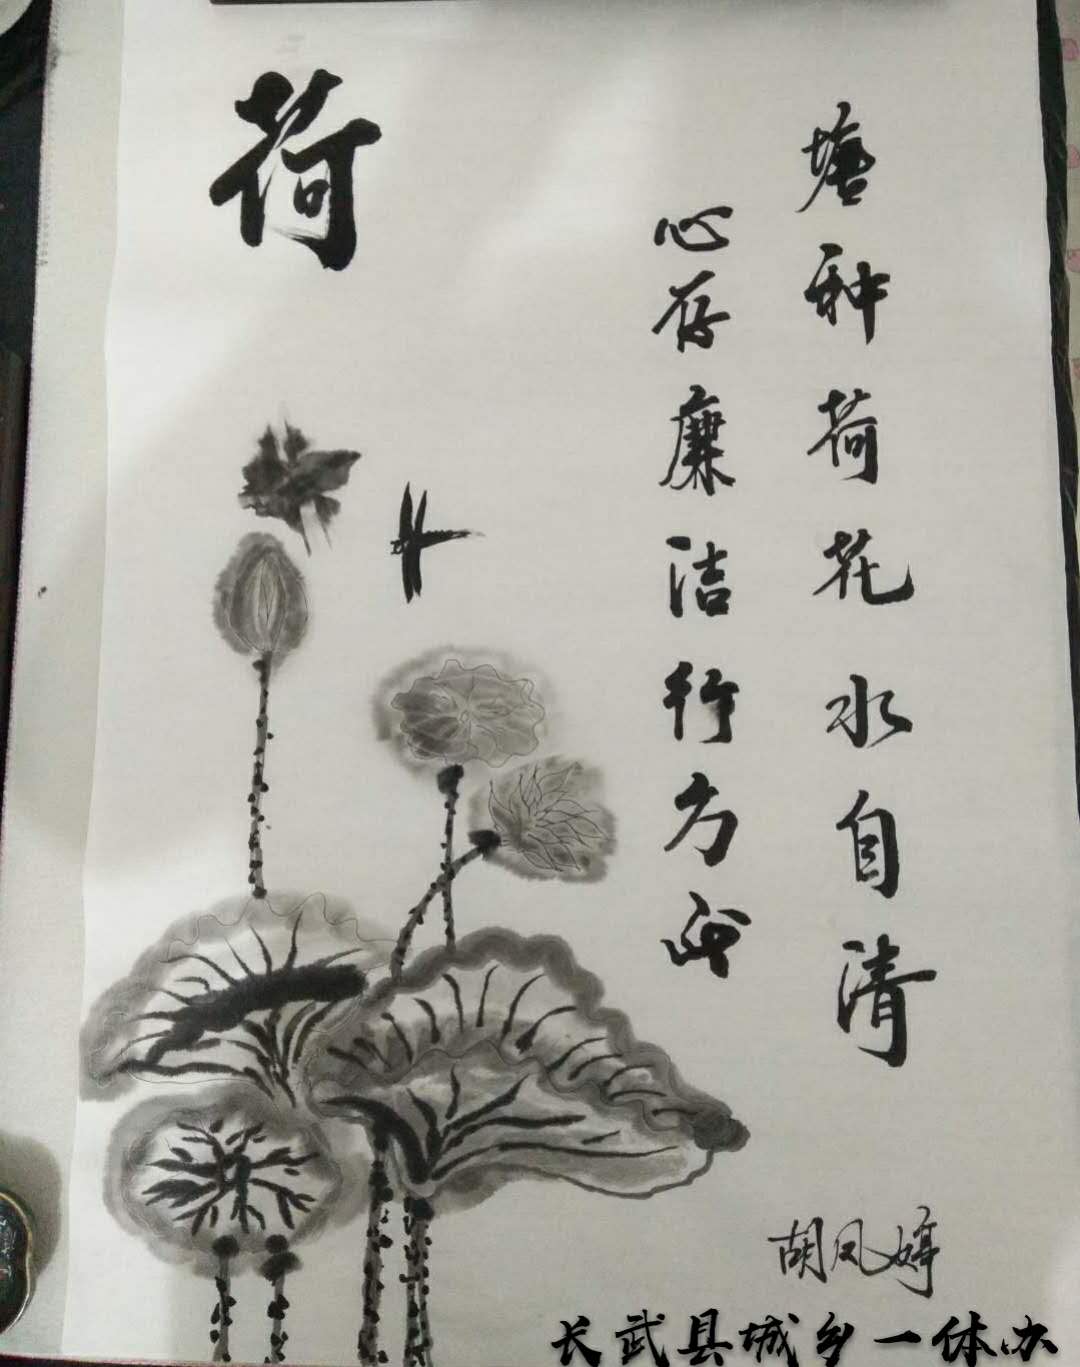 荷
塘种荷花水自清
心存廉洁行方
胡凤婷
长武县城乡一体办